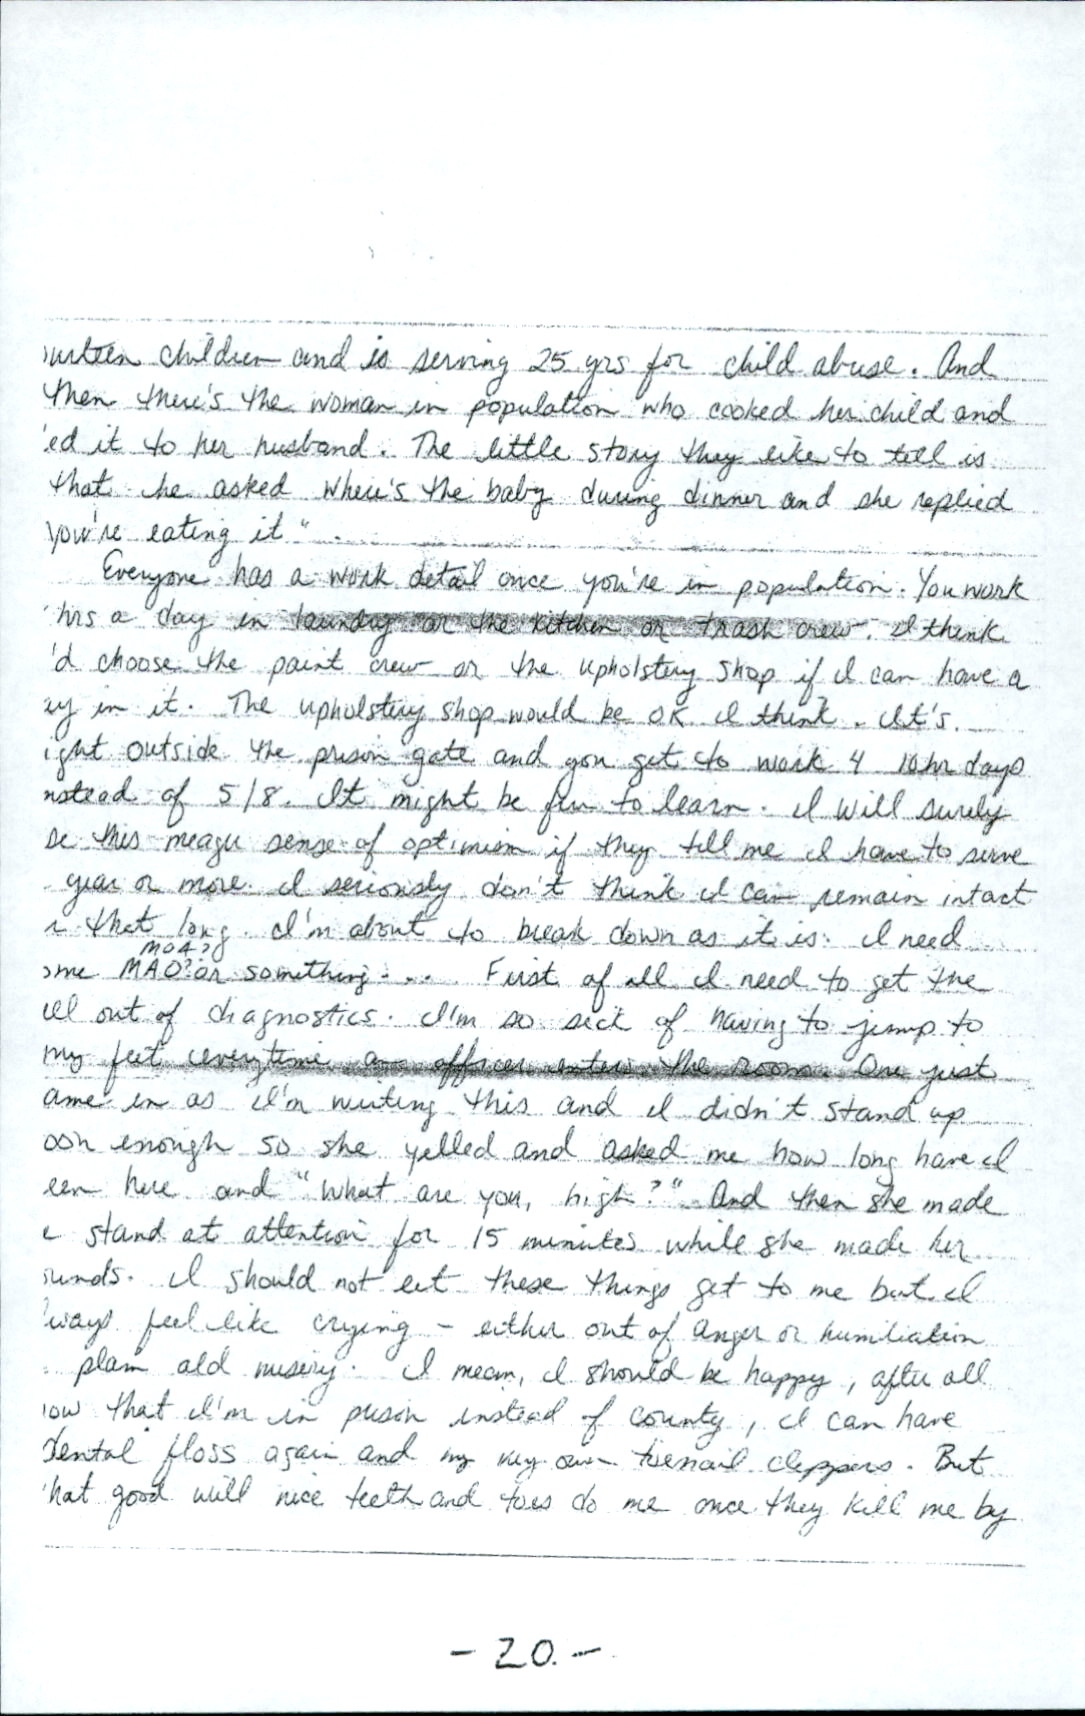 urteen children and is serving 25 yrs for child abuse. And
then there's the woman in population who cooked her child and
ed it to her husband. The little story they like to tell is
that he asked where's the baby during dinner and she replied
you're eating it".
Everyone has a work detail once you're in population. You work
hrs a day in laundry or the kitchen or trash crew. I think
'd choose the paint crew or the upholstery shop if I can have a
ay in it. The upholstery shop would be OK I think. It's
ight outside the prison gate and you get to work 4 10hr days
nstead of 5/8. It might be fun to learn. I will surely
se this meager sense of optimism if they tell me I have to serve
year or more. I seriously don't think I can remain intact
r that long. I'm about to break down as it is. I need
MOA?
ome MAO? or something.... First of all I need to get the
ell out of diagnostics. I'm so sick of having to jump to
my feet everytime an officer enters the room. One just
ame in as I'm writing this and I didn't stand up
oon enough so she yelled and asked me how long have I
een here and "What are you, high?" And then she made
e stand at attention for 15 minutes while she made her
ounds. I should not let these things get to me but I
lways feel like crying – either out of anger or humiliation
plain old misery. I mean, I should be happy, after all
now that I'm in prison instead of county, I can have
dental floss again and my very own toenail clippers. But
hat good will nice teeth and toes do me once they kill me by
- 20. -